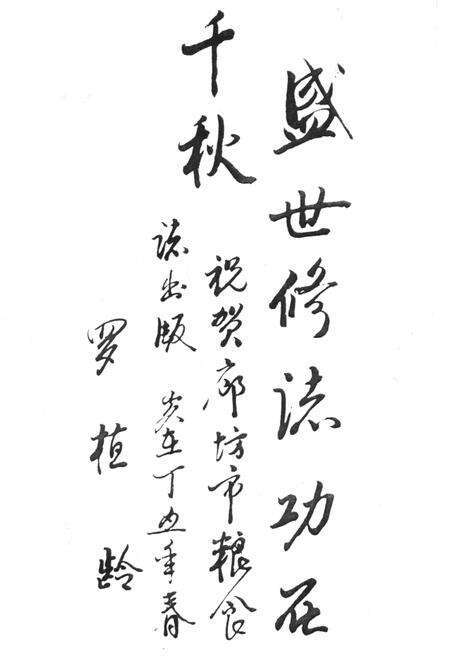 盛世修誌功在
千秋
祝贺廊坊市粮食
誌出版 岁在丁丑年春
罗植龄